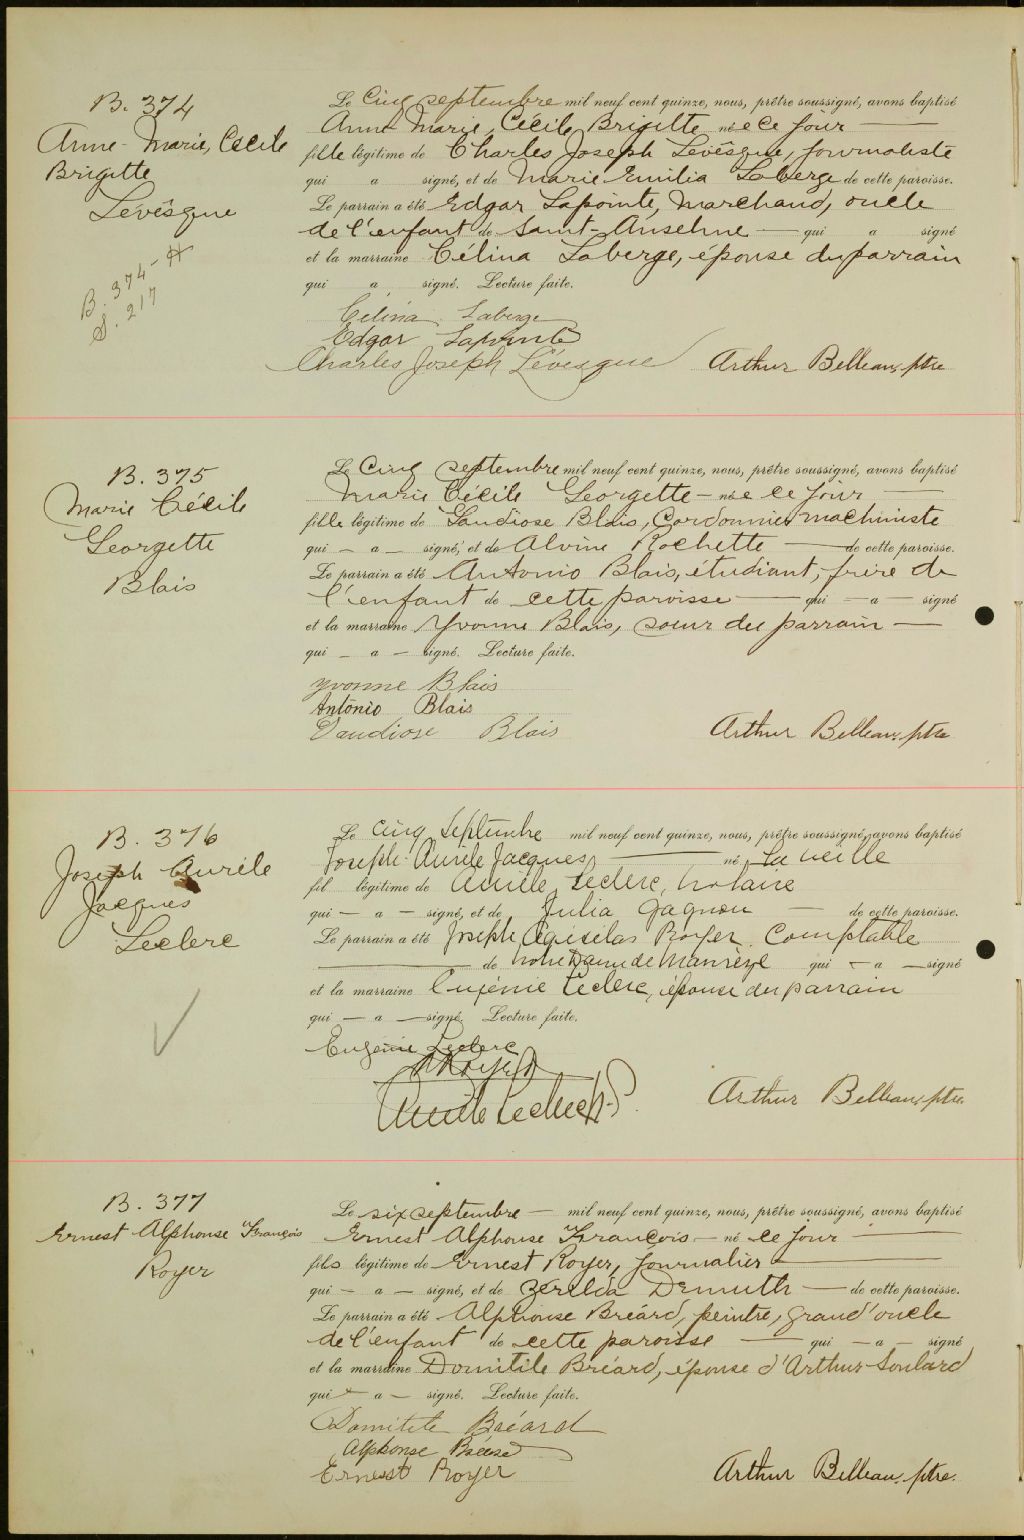 B. 374
Anne-Marie, Cécile
Brigitte
Lévêsque
B. 374-A
S. 217
Le Cinq septembre mil neuf cent quinze, nous, prêtre soussigné, avons baptisé
Anne Marie, Cécile Brigitte née ce jour
fille légitime de Charles Joseph Lévêsque, journaliste
qui a signé, et de Marie Emilia Laberge de cette paroisse.
Le parrain a été Edgar Lapointe, Marchand, oncle
de l'enfant de Saint-Anselme qui a signé
et la marraine Célina Laberge, épouse du parrain
qui a signé. Lecture faite.
Célina Laberge
Edgar Lapointe
Charles Joseph Lévesque Arthur Belleau, ptre
B. 375
Marie Cécile
Georgette
Blais
Le Cinq septembre mil neuf cent quinze, nous, prêtre soussigné, avons baptisé
Marie Cécile Georgette – née ce jour
fille légitime de Gaudiose Blais, Cordonnier machiniste
qui – a – signé, et de Alvine Rochette de cette paroisse.
Le parrain a été Antonio Blais, étudiant, frère de
l'enfant de cette paroisse qui – a – signé
et la marraine Yvonne Blais, soeur du parrain –
qui – a – signé. Lecture faite.
Yvonne Blais
Antonio Blais
Gaudiose Blais Arthur Belleau, ptre
B. 376
Joseph Aurèle
Jacques
Leclerc
Le cinq Septembre mil neuf cent quinze, nous, prêtre soussigné, avons baptisé
Joseph Aurèle Jacques, né, la veille
fil légitime de Aurèle Leclerc, notaire
qui – a – signé, et de Julia Gagnon – de cette paroisse.
Le parrain a été Joseph Agésilas Royer, Comptable
de Notre Dame de Manrèze qui – a – signé
et la marraine Eugénie Leclerc, épouse du parrain
qui – a – signé. Lecture faite.
Eugénie Leclerc
Royer
Aurèle Leclerc N.P. Arthur Belleau, ptre.
B. 377
Ernest Alphonse François
Royer
Le six septembre – mil neuf cent quinze, nous, prêtre soussigné, avons baptisé
Ernest Alphonse François – né ce jour
fils légitime de Ernest Royer, journalier
qui – a – signé, et de Zérilda Demuth – de cette paroisse.
Le parrain a été Alphonse Bréard, peintre, grand'oncle
de l'enfant de cette paroisse qui – a – signé
et la marraine Domitile Bréard, épouse d'Arthur Soulard
qui – a – signé. Lecture faite.
Domitile Bréard
Alphonse Bréard
Ernest Royer Arthur Belleau, ptre.